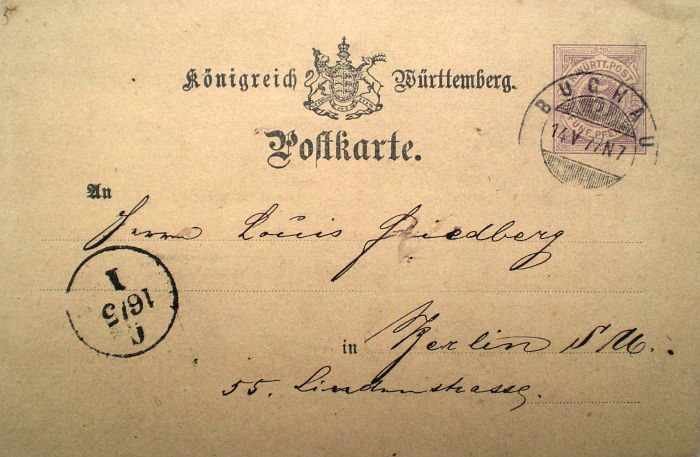 5
Königreich Württemberg.
WÜRTT. POST
FÜNF PF
BUCHAU
14 V 7/N 7
Postkarte.
An
Herrn Louis Friedberg
I
16/5
in Berlin S W.
55. Lindenstrasse.